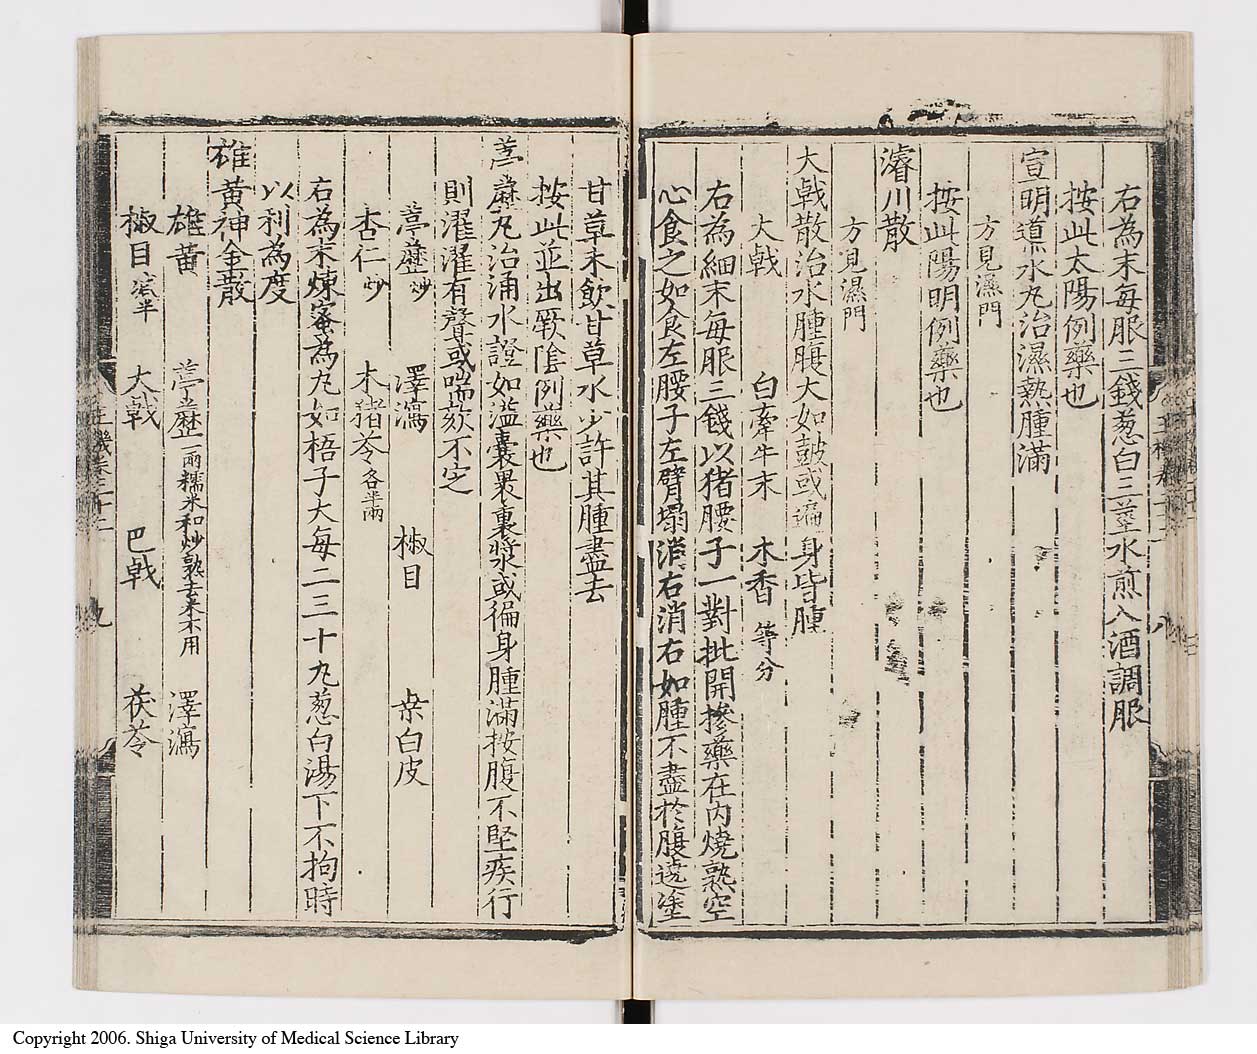 右為末每服三錢葱白三莖水煎入酒調服
按此太陽例藥也
宣明導水丸治濕熱腫滿
方見濕門
按此陽明例藥也
濬川散
方見濕門
大戟散治水腫腹大如鼓或遍身皆腫
大戟 白牽牛末 木香等分
右為細末每服三錢以猪腰子一對批開摻藥在內燒熟空
心食之如食左腰子左臂塌消右消右如腫不盡於腹遶塗
甘草末飲甘草水少許其腫盡去
按此並出厥陰例藥也
葶藶丸治涌水證如溢囊裹漿或徧身腫滿按腹不堅疾行
則濯濯有聲或喘欬不定
葶藶炒 澤瀉 椒目 桒白皮
杏仁炒 木猪苓各半兩
右為末煉蜜為丸如梧子大每二三十丸葱白湯下不拘時
以利為度
雄黃神金散
雄黃 葶藶一兩糯米和炒熟去米不用 澤瀉
椒目 大戟 巴戟 茯苓
玉機 八
玉機卷三十二 九
Copyright 2006. Shiga University of Medical Science Library